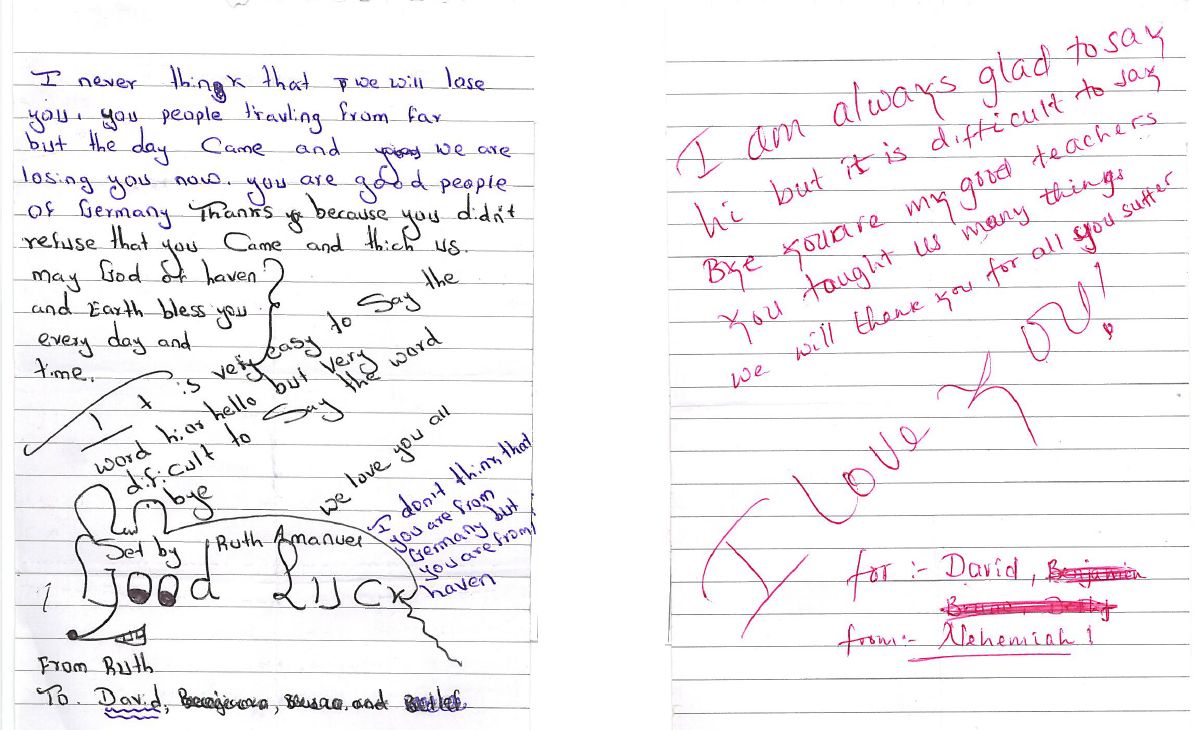 I never thingk that we will lose
you. you people travling from far
but the day Came and we are
losing you now. you are good people
of Germany Thanks because you didn't
refuse that you Came and thich us.
may God of haven
and Earth bless you
every day and
time.
It is very easy to Say the
word hiar hello but very
dificult to Say the word
bye
we love you all
I don't think that
you are from
Germany but
you are from
haven
Set by Ruth Amanuel
Good Luck
From Ruth
To. David, and
I am always glad to say
hi but it is difficult to say
Bye you are my good teachers
you taught us many things
we will thank you for all you suffer
I Love You!
for :- David, Benjamin
from:- Nehemiah!